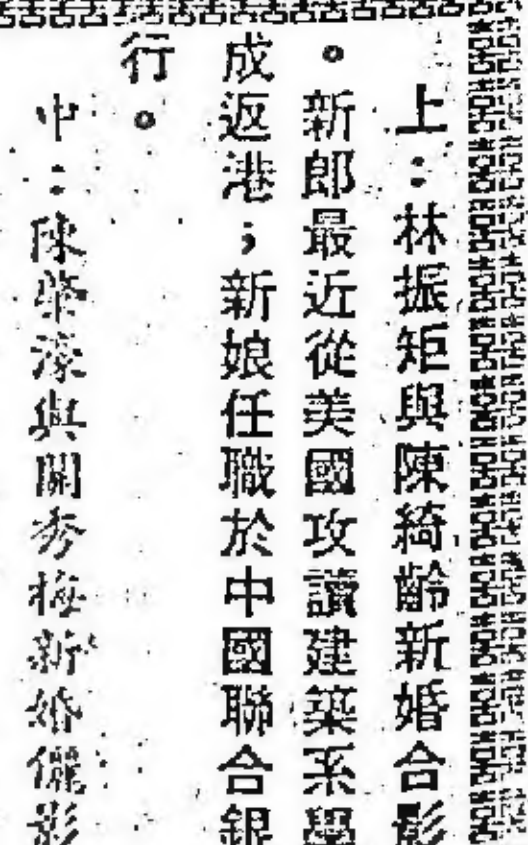 上：林振矩與陳綺齡新婚合影
。新郎最近從美國攻讀建築系學
成返港；新娘任職於中國聯合銀
行。
中：陳榮濠與關秀梅新婚儷影